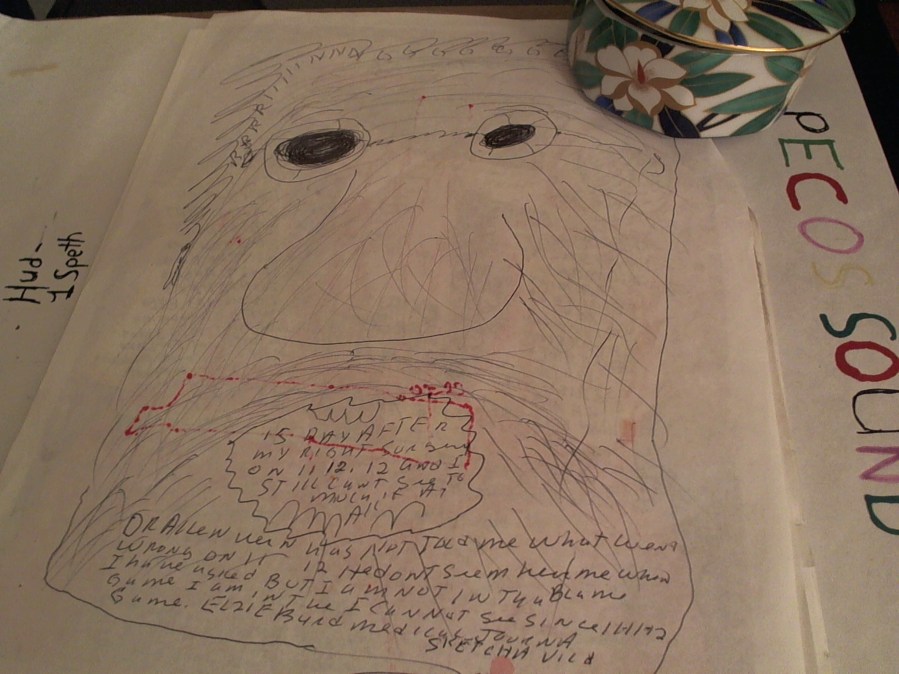 BRRRIIIIINNNGGGGGGG
PECOS SOUND
Hud-
1 Speth
15 DAY AFTER
my RIGHT Surgery
ON 11 12. 12 and I
STILL CanT See To
much if AT
All
DR Allen has NOT Told me whaT wenT
wrong on 11 12 He donT Seem hear me when
I have asked BUT I am NOT IN The Blame
Game I am IN The I Can NoT See SINCe
Game. ELZIE Burd medical JOURNA
SKETCHA